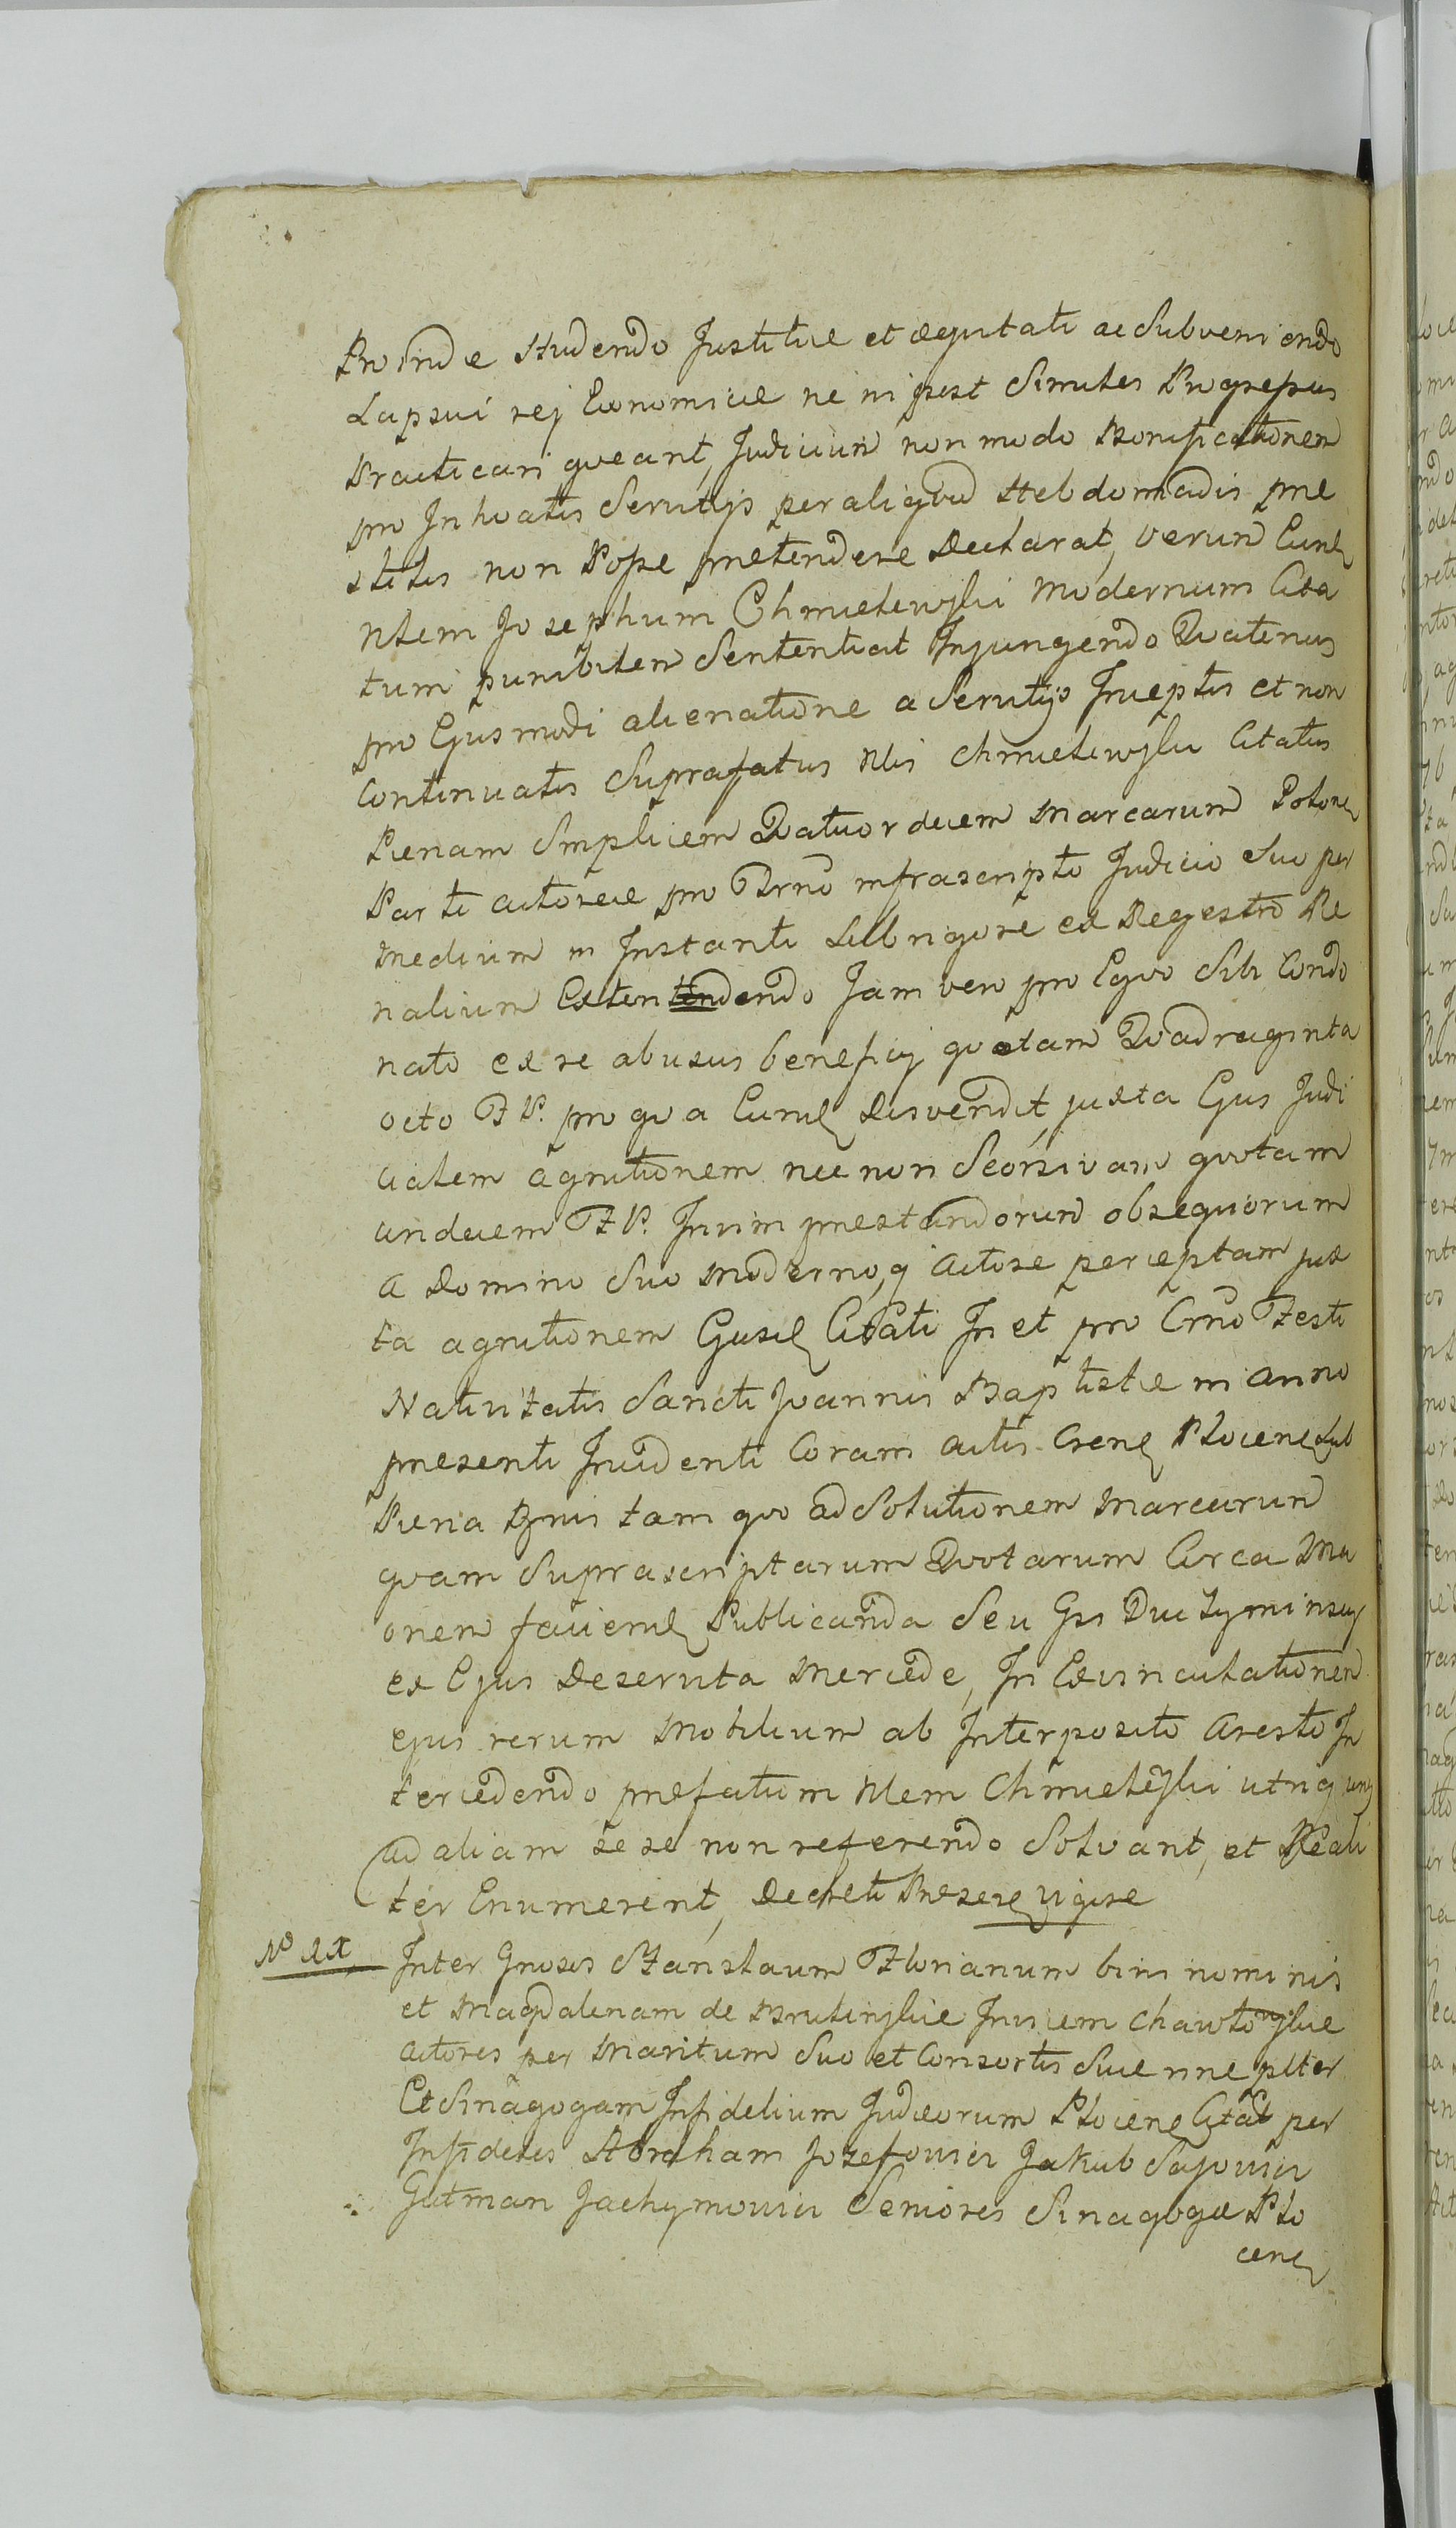 Proinde studendo Justitiæ et æquitati ac subveniendo
Lapsui rej Economicæ ne in post similes Progressus
Practicari queant, Judicium non modo Bonificationem
pro Inhoatis Servitijs per aliquod Hebdomadis præ
stitis non Posse prætendere Declarat, verum Eund
ntem Josephum Chmielewski modernum Cita
tum punibilem Sententiat Injungendo Quatenus
pro Ejusmodi alienatione a Servitijs Inceptis et non
Continuatis Suprafatus Nlis Chmielewski Citatus
Pænam Simplicem Quatuordecem Marcarum Polone
Parti actoreæ pro Trno infrascripto Judicio suo per
medium in Instanti sub rigore ex Regestro Pe
nalium Extendendo Jam vero pro Equo Sibi Condo
nato ex re abusus beneficij quotam Quadraginta
octo F P. pro qua Eund disvendit, juxta Ejus Judi
cialem agnitionem nec non Seorsivam quotam
undecem F P. Invim præstandorum obsequiorum
a Domino Suo Moderno, q Actore perceptam jux
ta agnitionem Ejusd Citati In et pro Crno Festi
Nativitatis Sancti Joannis Baptistæ in anno
præsenti Incidenti Coram actis Crens Plocens sub
Pæna Bnis tam quo ad Solutionem Marcarum
quam Suprascriptarum Quotarum Circa Ma
onem faciend Publicanda Seu Gsi Ductyminsky
ex Ejus Deservita Mercede, In Exvinculationem
ejus rerum Mobilium ab Interposito Aresto In
tercedendo præfatum Nlem Chmielewski utriq uny
ad aliam se se non referendo Solvant, et Reali
ter Enumerent, Decreti Præsens vigore
No XX Inter Gnosos Stanslaum Florianum bini nominis
et Magdalenam de Brulinskie Invicem Chawłowskie
actores per Maritum Suo et Consortis Suæ nne plter
Et Sinagogam Infidelium Judæorum Plocens Citat per
Infideles Abraham Jozefowicz Jakub Sajowicz
Gutman Jachymowicz Seniores Sinagogæ Plo
cens